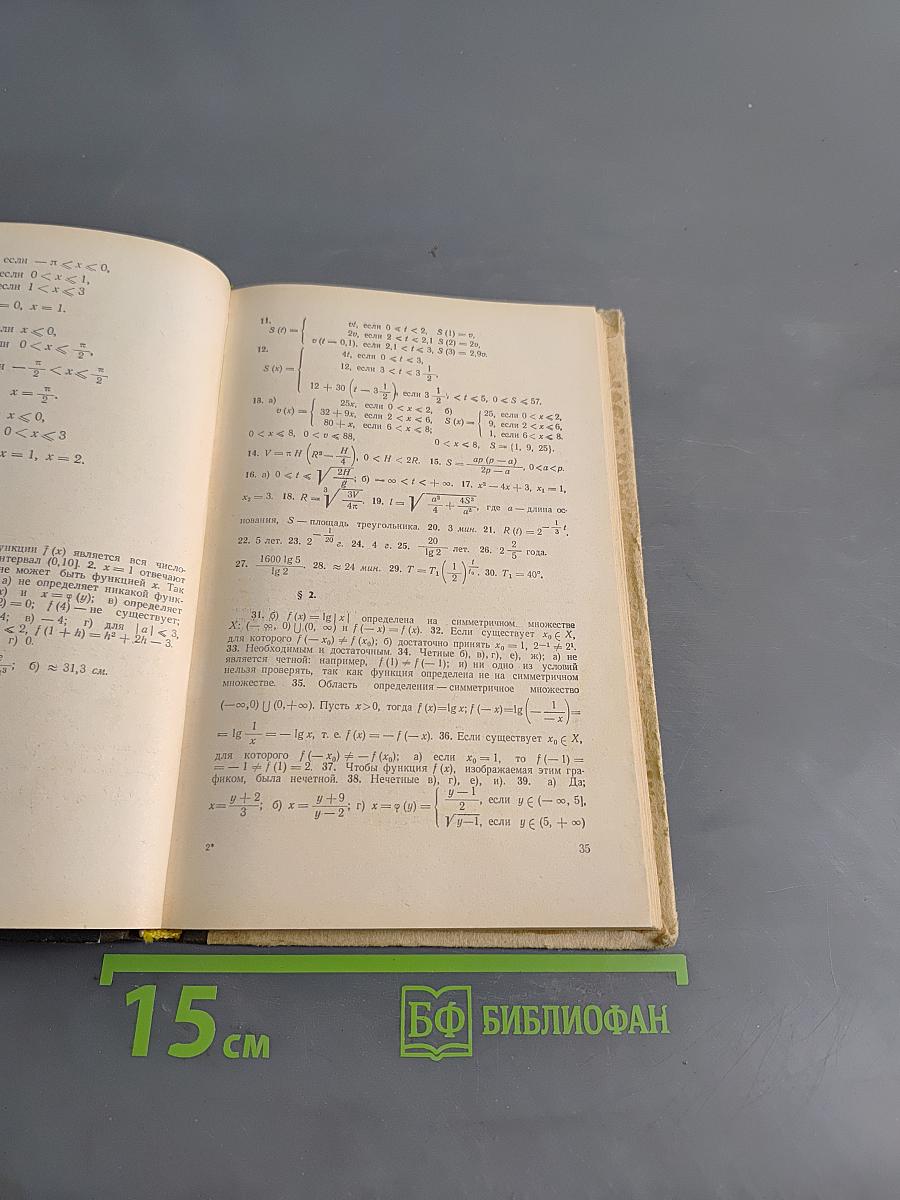 если — π ⩽ x ⩽ 0,
если 0 < x ⩽ 1,
если 1 < x ⩽ 3
= 0, x = 1.
x ⩽ 0,
0 < x ⩽ π/2,
— π/2 < x ⩽ π/2
x = π/2.
x ⩽ 0,
0 < x ⩽ 3
x = 1, x = 2.
f (x) является вся число-
(0,10]. 2. x = 1 отвечают
не может быть функцией x. Так
а) не определяет никакой функ-
и x = φ (y); в) определяет
= 0; f (4) — не существует;
в) — 4; г) для | a | ⩽ 3,
⩽ 2, f (1 + h) = h² + 2h — 3.
г) 0.
б) ≈ 31,3 см.
11.
S (t) = { vt, если 0 ⩽ t < 2, S (1) = v,
2v, если 2 < t < 2,1 S (2) = 2v,
v (t — 0,1), если 2,1 < t ⩽ 3, S (3) = 2,9v.
12.
S (x) = { 4t, если 0 ⩽ t ⩽ 3,
12, если 3 < t < 3 1/2,
12 + 30 (t — 3 1/2), если 3 1/2, < t ⩽ 5, 0 ⩽ S ⩽ 57.
13. а)
v (x) = { 25x, если 0 < x ⩽ 2, б) S (x) = { 25, если 0 < x ⩽ 2,
32 + 9x, если 2 < x ⩽ 6, 9, если 2 < x ⩽ 6,
80 + x, если 6 < x ⩽ 8; 1, если 6 < x ⩽ 8.
0 < x ⩽ 8, 0 < v ⩽ 88, 0 < x ⩽ 8, S = {1, 9, 25}.
14. V = π H (R² — H/4), 0 < H < 2R. 15. S = ap (p — a)/2p — a, 0<a<p.
16. а) 0 ⩽ t ⩽ √2H/g; б) — ∞ < t < + ∞. 17. x² — 4x + 3, x₁ = 1,
x₂ = 3. 18. R = ³√3V/4π. 19. l = √a²/4 + 4S²/a², где a — длина ос-
нования, S — площадь треугольника. 20. 3 мин. 21. R (t) = 2^(— 1/3 t).
22. 5 лет. 23. 2^(— 1/20) г. 24. 4 г. 25. 20/lg 2 лет. 26. 2 2/5 года.
27. 1600 lg 5/lg 2. 28. ≈ 24 мин. 29. T = T₁ (1/2)^(t/t₀). 30. T₁ = 40°.
§ 2.
31. б) f (x) = lg | x | определена на симметричном множестве
X: (— ∞, 0) ⋃ (0, ∞) и f (— x) = f (x). 32. Если существует x₀ ∈ X,
для которого f (— x₀) ≠ f (x₀); б) достаточно принять x₀ = 1, 2⁻¹ ≠ 2¹.
33. Необходимым и достаточным. 34. Четные б), в), г), е), ж); а) не
является четной: например, f (1) ≠ f (— 1); и) ни одно из условий
нельзя проверять, так как функция определена не на симметричном
множестве. 35. Область определения — симметричное множество
(—∞,0) ⋃ (0,+∞). Пусть x>0, тогда f (x)=lg x; f (— x)=lg (— 1/— x)=
= lg 1/x = — lg x, т. е. f (x) = — f (— x). 36. Если существует x₀ ∈ X,
для которого f (— x₀) ≠ — f (x₀); а) если x₀ = 1, то f (— 1) =
= — 1 ≠ f (1) = 2. 37. Чтобы функция f (x), изображаемая этим гра-
фиком, была нечетной. 38. Нечетные в), г), е), и). 39. а) Да;
x = y + 2/3; б) x = y + 9/y — 2; г) x = φ (y) = { y — 1/2, если y ∈ (— ∞, 5],
√y—1, если y ∈ (5, + ∞)
2* 35
15 см БФ БИБЛИОФАН